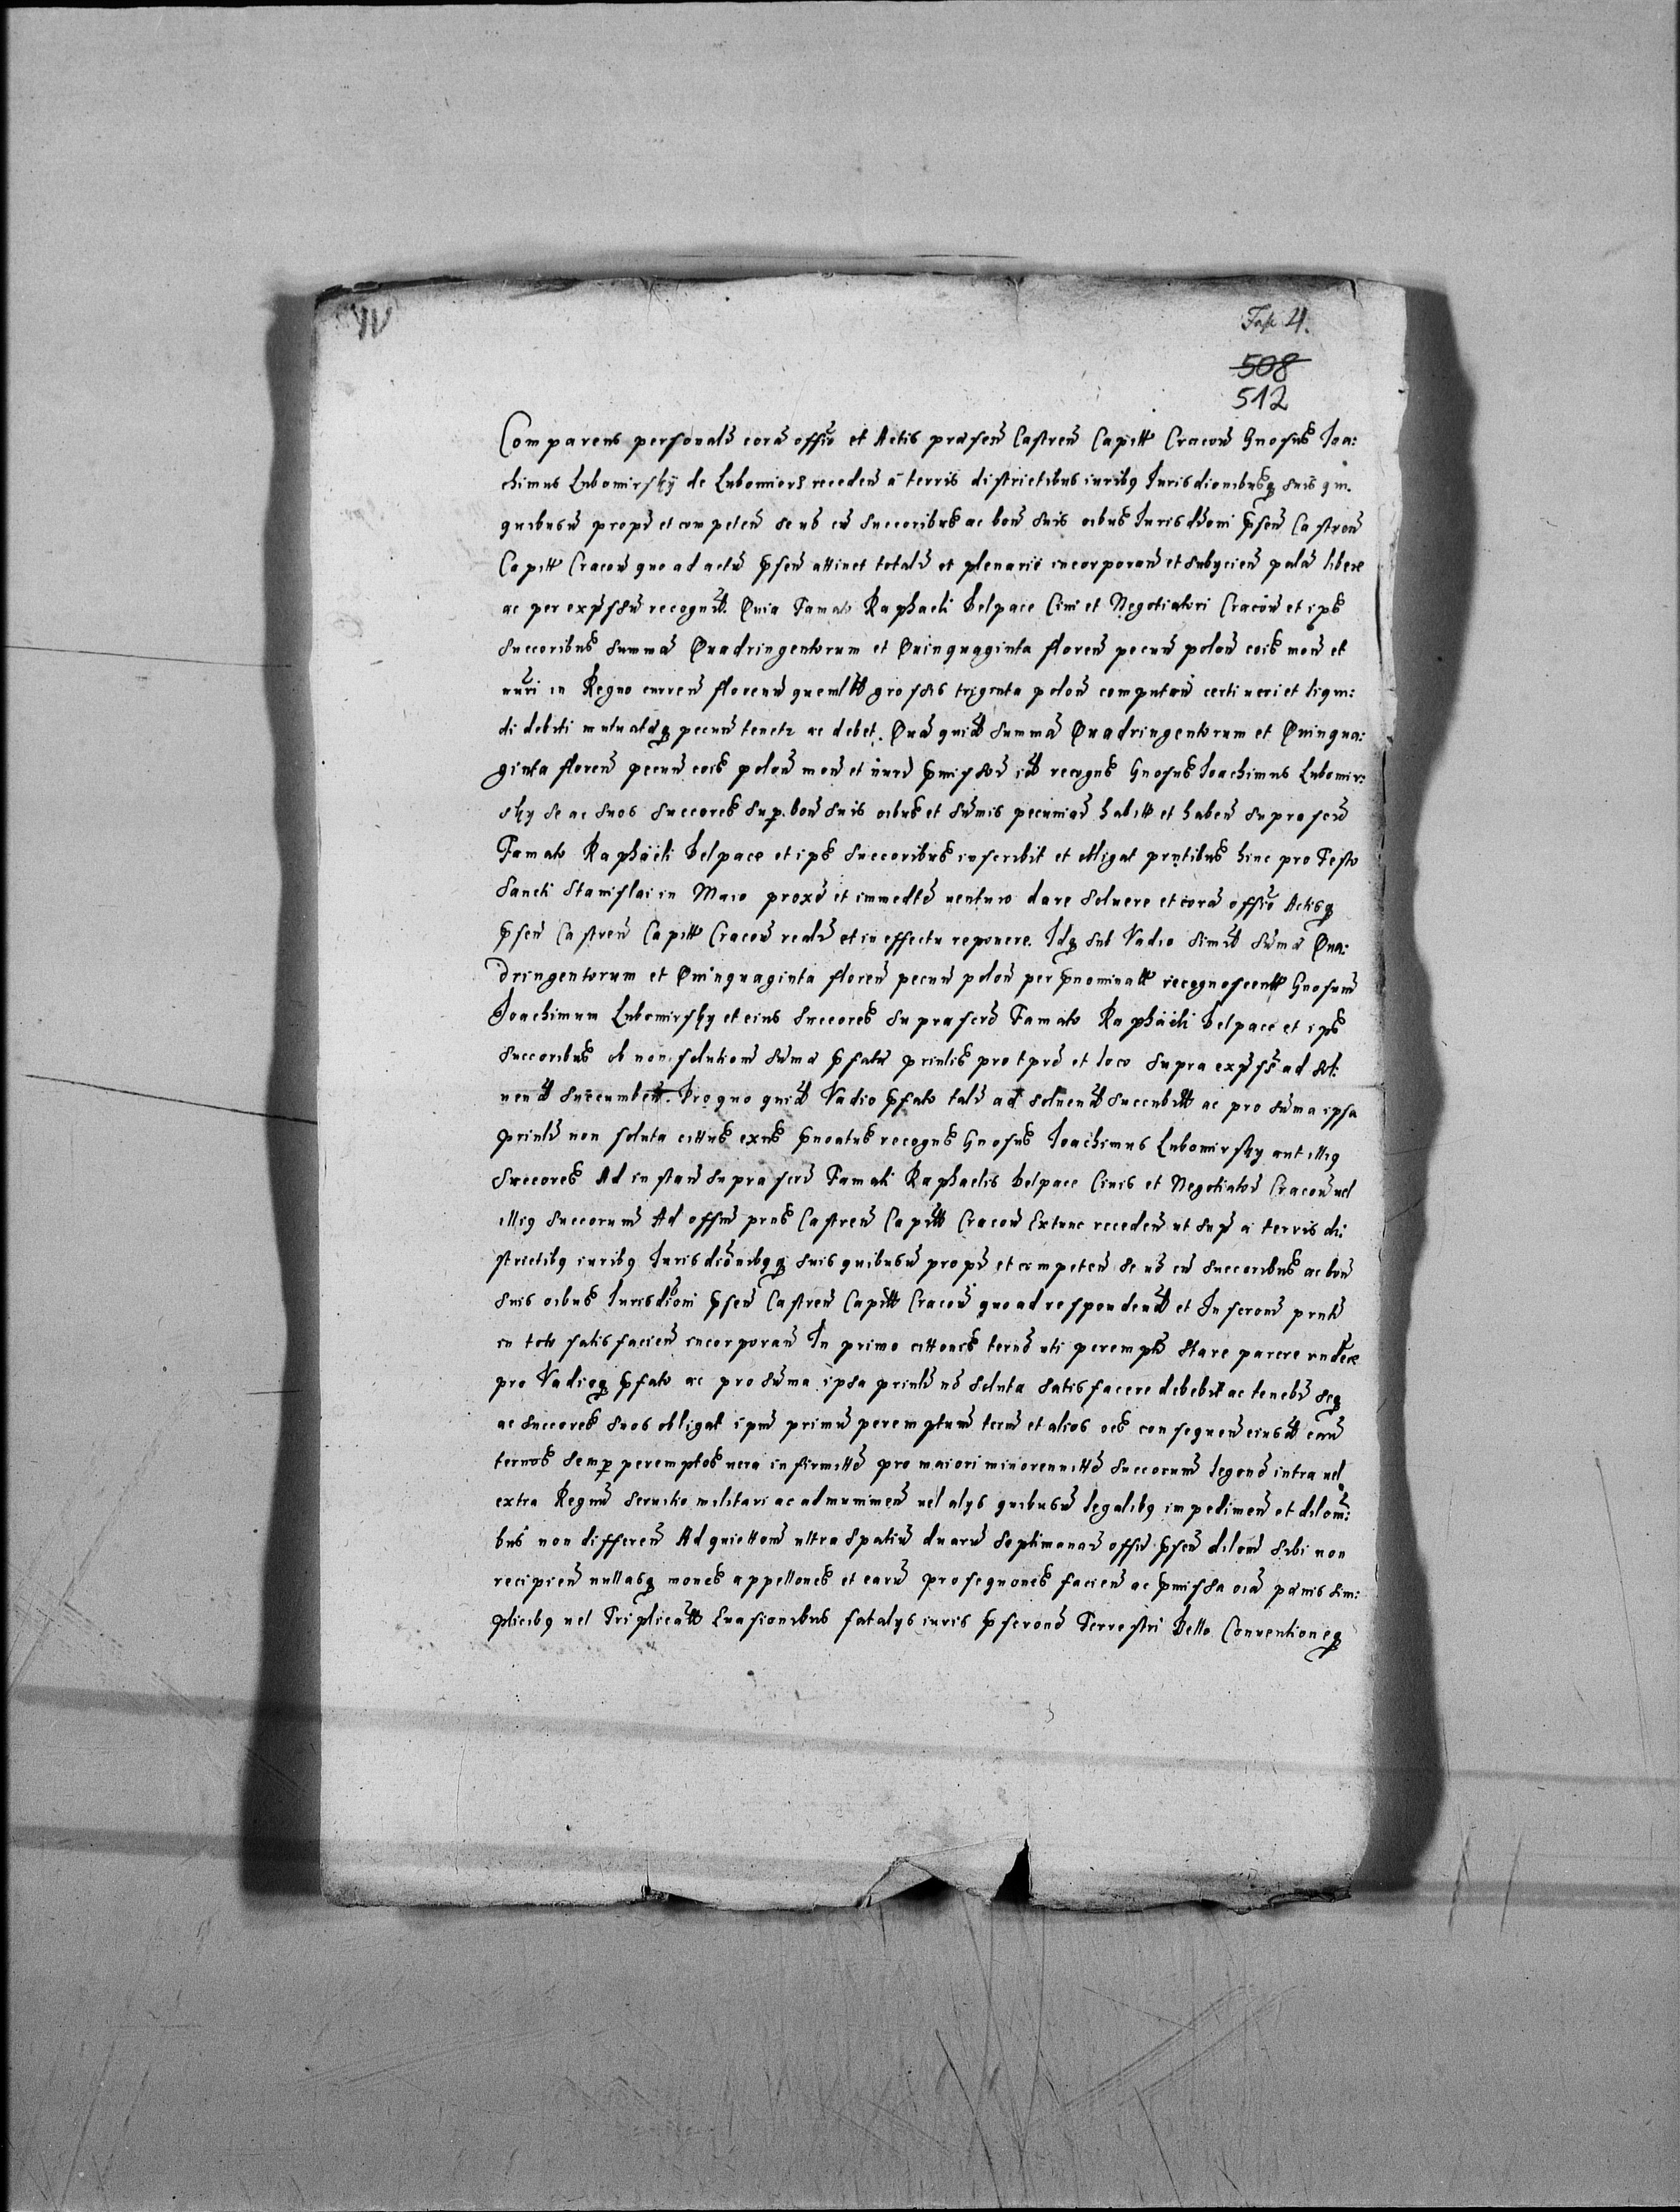 Fasc 21.
508
512
Comparens personalr corā offio et Actis præsen Castren Capitt Cracou Gnosus Ioa:
chimus Lubomirskÿ de Lubomierz receden à terris districtibus iuribq Iurisdionibusq suis qui.
quibusu propr et competen se ub cū succoribus ac bon suis oibus Iurisdioni psen Castren
Capitt Cracou quo ad actū psen attinet totalr et plenarie incorporan et subycien palā libere
ac per expssū recognit. Quia Famato Raphaeli Delpace Ciui et Negotiatori Cracou et ips
succoribus summā Quadringentorum et Quinquaginta floren pecun polon cois mon et
nuri in Regno curren florenū quemlibt grossis triginta polon computan certi ueri et liqui:
di debiti mutuatarq pecun tenetr ac debet. Quā quid summā Quadringentorum et Quinqua:
ginta floren pecun cois polon mon et nuri pmissor id recogns Gnosus Ioachimus Lubomir:
sky se ac suos succores sup. bon suis oibus et sumis pecuniar habitt et haben suprascr
Famato Raphaeli Delpace et ips succoribus inscribit et obligat pntibus hinc pro Festo
Sancti Stanislai in Maio proxe et immedte uenturo dare soluere et corā offio Actisq
psen Castren Capitt Cracou realr et in effectu reponere. Idq sub Vadio simil sumā Qua:
dringentorum et Quinquaginta floren pecun polon per pnominatt recognoscentt Gnosum
Ioachimum Lubomirsky et eius succores suprascr Famato Raphaeli Delpace et ips
succoribus ob non solutionē sumā pfatæ printis pro tpre et loco supra expss ad sol:
uend succumbett. Pro quo quid Vadio pfato talr ad soluend succubitt ac pro suma ipsa
printr non soluta cittus exns pnoatus recogns Gnosus Ioachimus Lubomirsky aut illiq
succores Ad instan suprascr Famati Raphaelis Delpace Ciuis et Negotiator Cracou uel
illiq succorum Ad offiū prns Castren Capitt Cracou Extunc receden ut supr à terris di:
strictibq iuribq Iurisdionibqq suis quibusu propr et competen se ub cū succoribus ac bon
suis oibus Iurisdioni psen Castren Capitt Cracou quo ad respondend et Inscronē prntē
in toto satisfacien incorporan In primo cittonis terno uti perempto stare parere rndere
pro Vadioq pfato ac pro suma ipsa printr nō soluta satisfacere debebit ac tenebr seq
ac succores suos obligat ipm primū peremptum ternū et alios oes consequen eiusd caræ
ternos semp peremptos uera infirmitte pro maiori minorennitte succorum legone intra uel
extra Regnū seruitio militari ac admuninen uel alys quibusu legalibq impedimen et dilom:
bus non differen Ad quiettonē ultra spatiū duarū septimanar offiū psen dilonē sibi non
recipien nullasq mones appellones et earū prosequones facien ac pmissa oia pænis sim:
plicibq uel Triplicatt Euasionibus fatalys iuris pscrone Terrestri Bello Conuentioneq